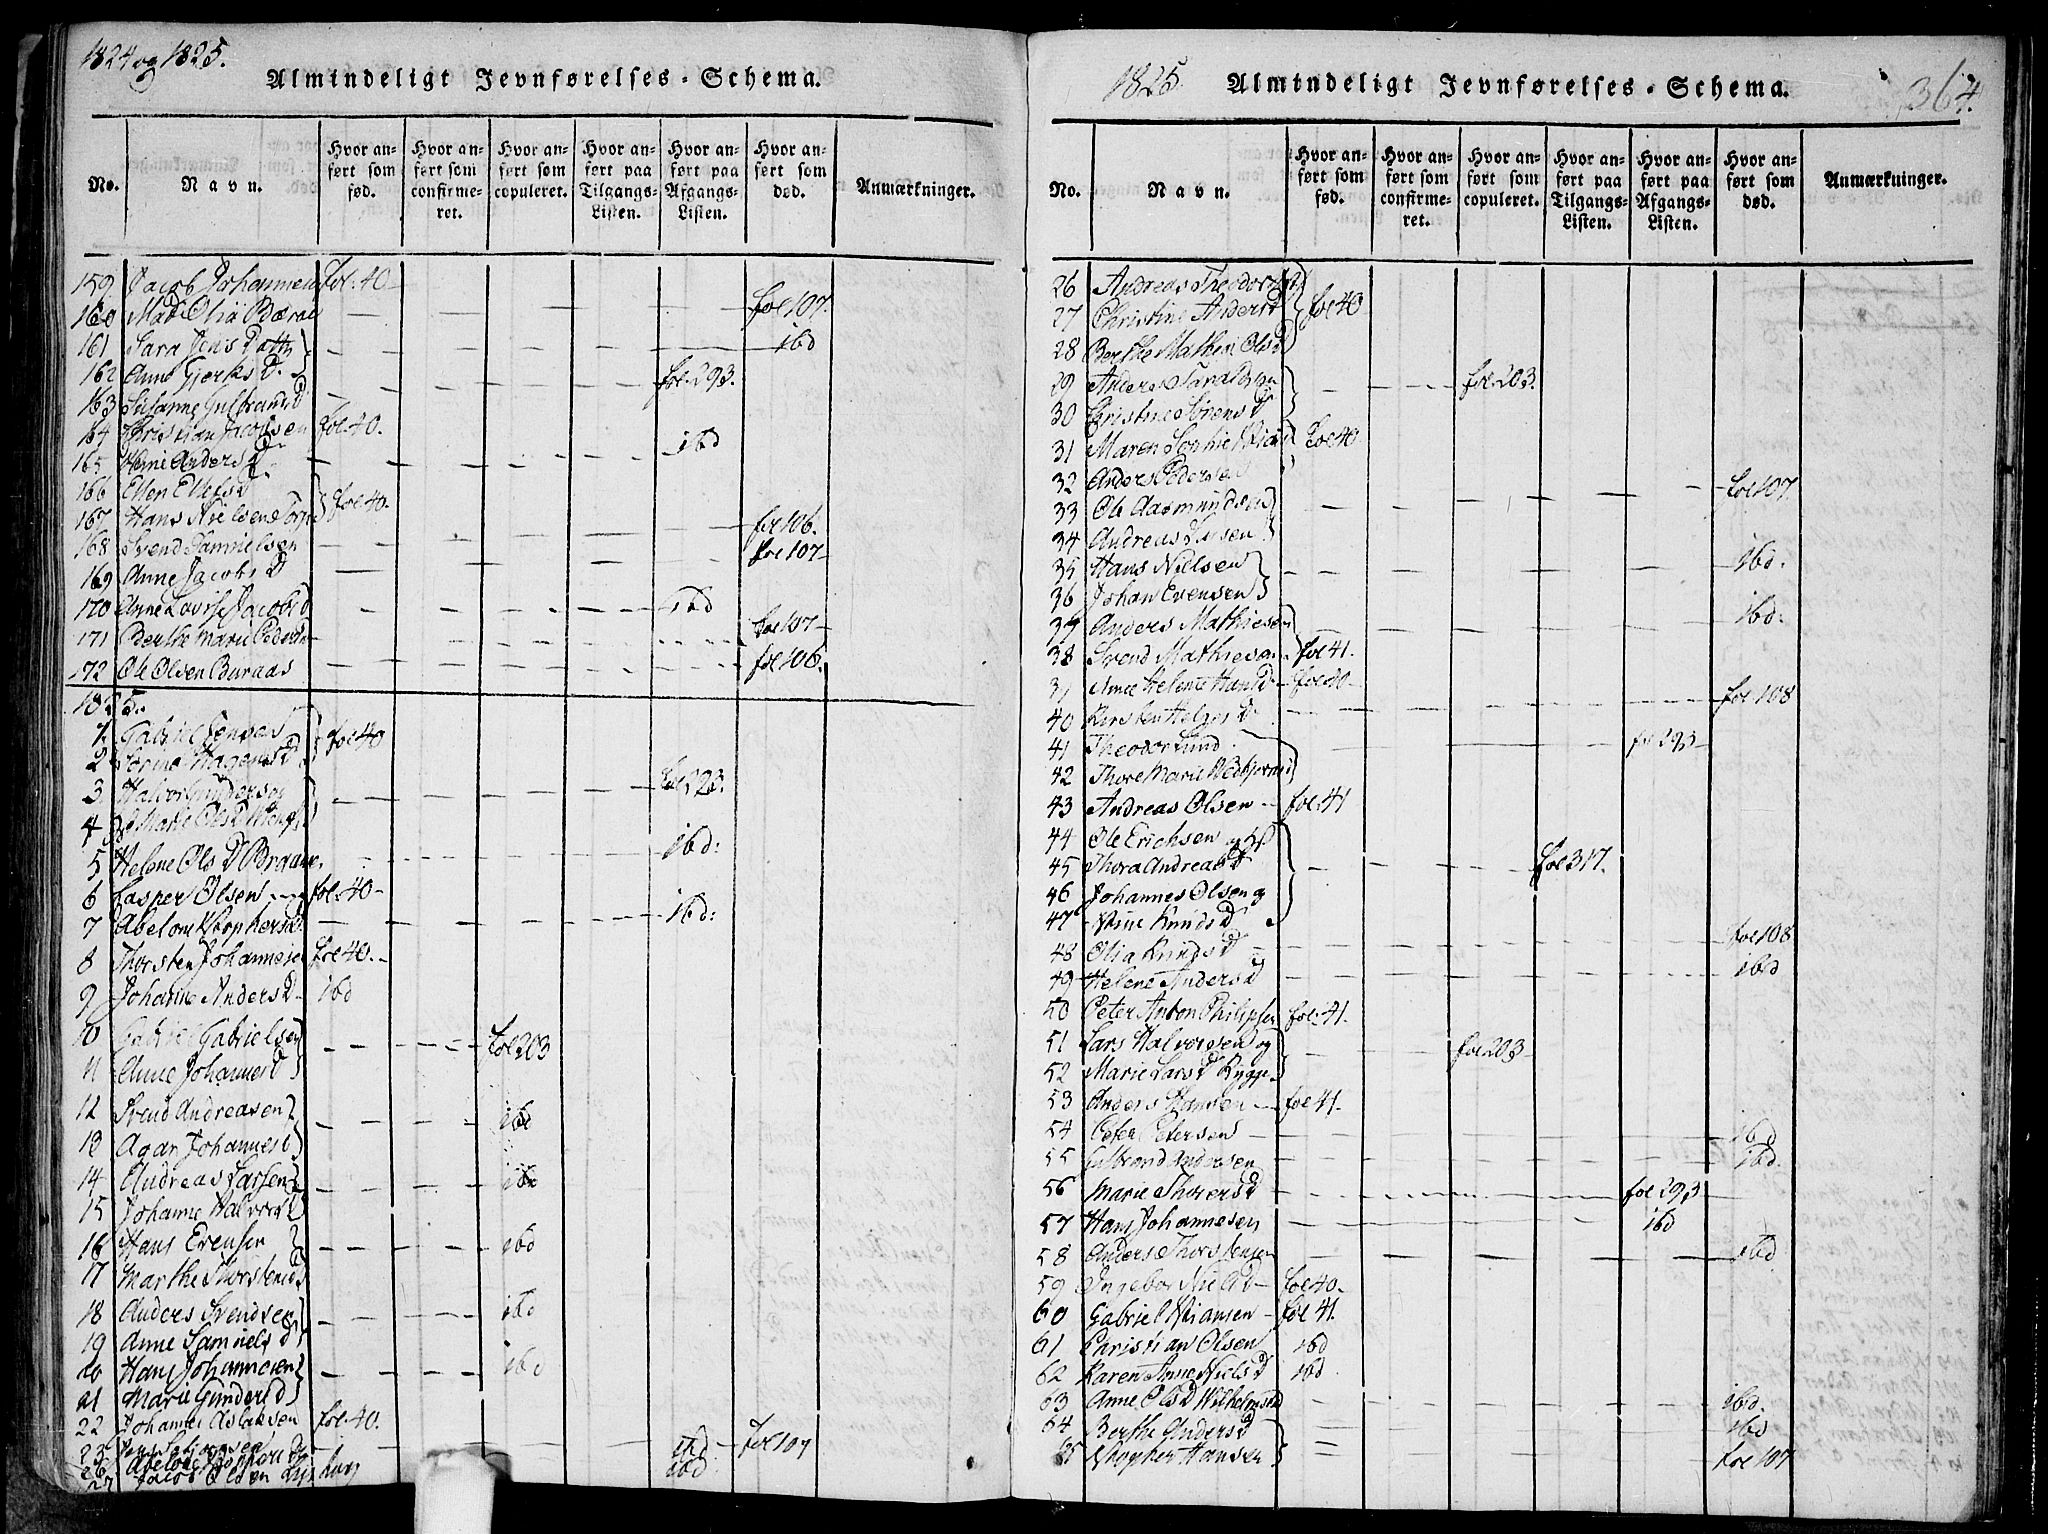 1824 og 1825.
Almindeligt Jevnførelses-Schema.
No.
Navn.
Hvor anført som fød.
Hvor anført som confirmeret.
Hvor anført som copuleret.
Hvor anført paa Tilgangs-Listen.
Hvor anført paa Afgangs-Listen.
Hvor anført som død.
Anmærkninger.
159 Jacob Johannesen fol. 40
160 fol 107.
161 Sara Jens Datter ibd
162 Anne fol. 293.
163 Susanne Gulbrands D
164 Christian Jacobsen fol. 40.
165 Anders D ibd
166 Ellen Ellefs D
167 Hans Nielsen fol. 40.
168 Svend Samuelsen fol 106.
169 Anne Jacobs D fol 107
170 Anne Lovise Jacobs D ibd
171 Berthe Marie Peders D fol 107
172 Ole Olsen Buraas fol 106.
1825.
1. Gabriel Jensen
2 fol 40
3. Halvor Gundersen fol. 293.
4 Marie Ols D
5 Helene Ols D ibd:
6 Casper Olsen fol. 40
7 Abelone ibd:
8 Thorsten Johannesen fol 40.
9 Johanne Anders D ibd
10 Gabriel Gabrielsen
11 Anne Johannes D fol 203
12 Svend Andreasen ibd
13 Agar Johannes D
14 Andreas Larsen ibd
15 Johanne Halvors D
16 Hans Evensen ibd
17 Marthe Thorstens D
18 Anders Svendsen ibd
19 Anne Samuels D
20 Hans Johannesen ibd
21 Marie Gunders D
22 Johannes Aslaksen fol. 40.
23 ibd fol 107
26 ibd
27 Jacob Olsen
1825.
Almindeligt Jevnførelses-Schema.
364.
No.
Navn.
Hvor anført som fød.
Hvor anført som confirmeret.
Hvor anført som copuleret.
Hvor anført paa Tilgangs-Listen.
Hvor anført paa Afgangs-Listen.
Hvor anført som død.
Anmærkninger.
26 Andreas
27 Christine Anders D fol 40
28 Berthe Mathea Ols D
29 Anders fol. 203.
30 Christine Sørens D
31 Maren Sophie fol 40
32 Anders Pedersen fol 107
33 Ole Aasmundsen
34 Andreas ibd.
35 Hans Nielsen
36 Johan Evensen ibd:
37 Anders Mathiesen
38 Svend Mathiesen fol 41.
39 Anne Helene Hans D fol 40
40 Kirsten Helges D fol 108
41 Theodor Lund fol 293
42 Thore Marie
43 Andreas Olsen fol. 41
44 Ole Erichsen og
45 Thora Andreas D fol 317.
46 Johannes Olsen og
47 Knuds D
48 Olia Knuds D fol 108
49 Helene Anders D ibd
50 Peter Anton Philipsen fol. 41.
51 Lars Halvorsen og
52 Marie Lars D Rygge fol 203
53 Anders Hansen fol 41.
54 Peter Petersen ibd
55 Gulbrand Andersen ibd.
56 Marie Thores D fol 293
57 Hans Johannesen ibd
58 Anders Thorstensen ibd
59 Ingebor Niels D fol 40.
60 Gabriel Xtiansen fol 41.
61 Christian Olsen ibd
62 Karen Anne Niels D ibd
63 Anne Ols D ibd.
64 Berthe Anders D ibd
65 Xtopher Hansen fol 107